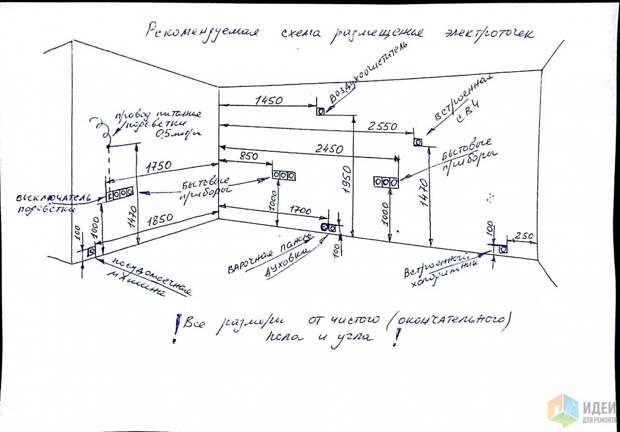 Рекомендуемая схема размещение электроточек
воздухоочиститель
1450
встроенная
СВЧ
2550
провод питание
подсветки
0,5 метр
2450
Бытовые
приборы
1750
850
Бытовые
приборы
1950
1470
выключатель
подсветки
1000
1470
1000
1000
1700
1850
100
100
100
250
посудомоечная
машина
варочная панель
духовка
Встроенный
холодильник
! Все размеры от чистого (окончательного)
пола и угла !
ИДЕИ
ДЛЯ РЕМОНТА